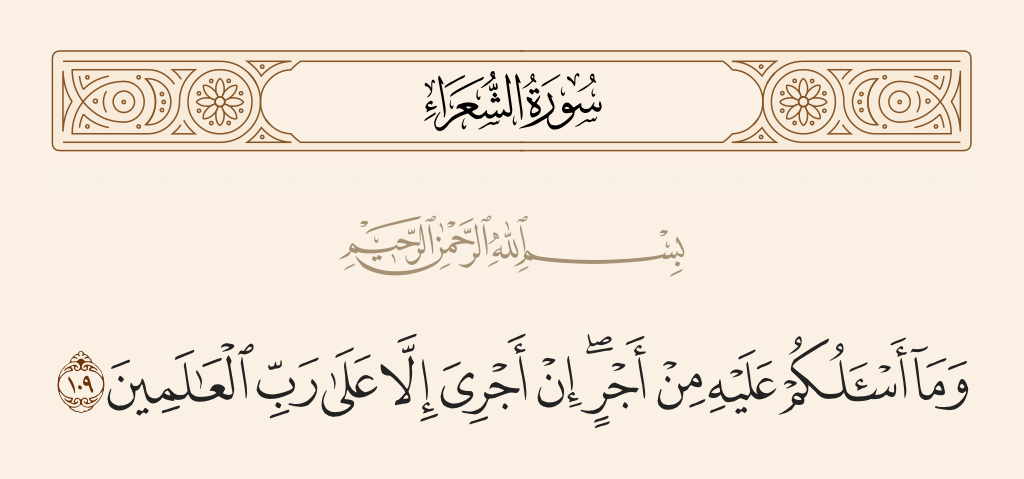 سُورَةُ الشُّعَرَاءِ
بِسْمِ ٱللَّهِ ٱلرَّحْمَٰنِ ٱلرَّحِيمِ
وَمَآ أَسْـَٔلُكُمْ عَلَيْهِ مِنْ أَجْرٍ ۖ إِنْ أَجْرِىَ إِلَّا عَلَىٰ رَبِّ ٱلْعَـٰلَمِينَ ١٠٩